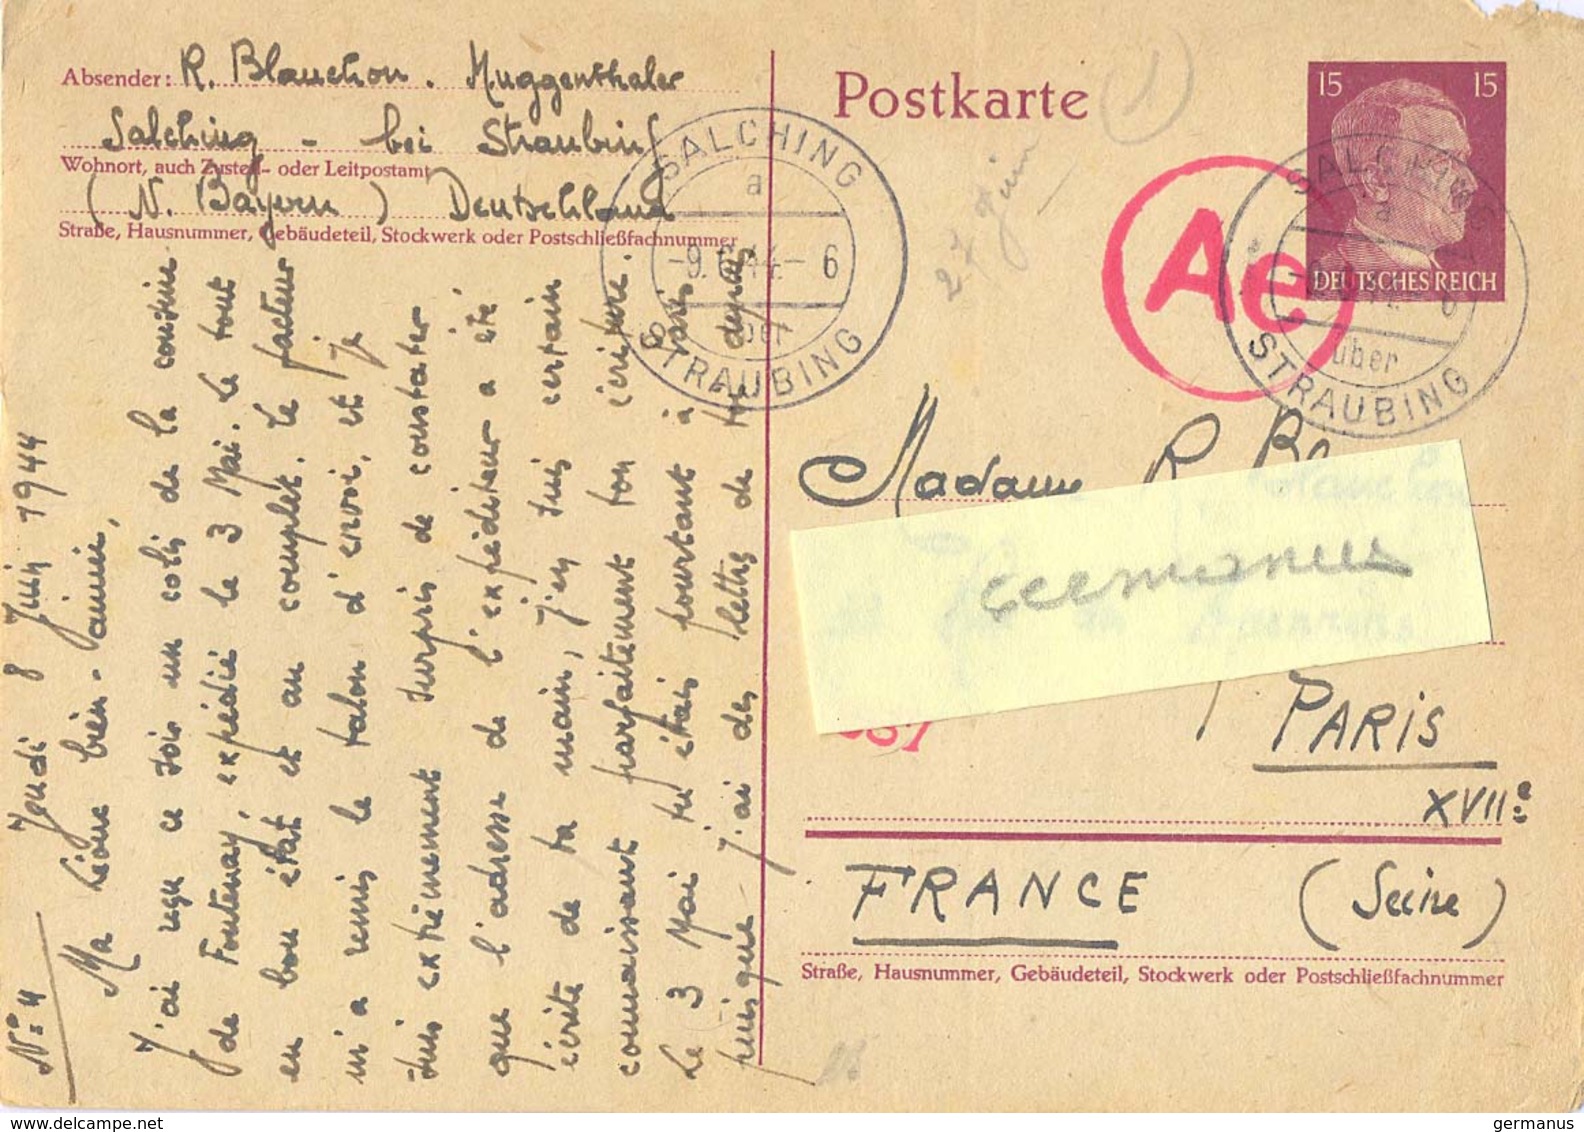 Absender: R. Blanchon. Muggenthaler
Salching - bei Straubing
Wohnort, auch Zustell- oder Leitpostamt
(N. Bayern) Deutschland
Straße, Hausnummer, Gebäudeteil, Stockwerk oder Postschließfachnummer
Postkarte
1
27 Juin
15 15
DEUTSCHES REICH
SALCHING
a
-9.6.44.- 6
über
STRAUBING
Ae
SALCHING
a
6
über
STRAUBING
N° 4 Jeudi 8 Juin 1944
Ma Léone bien-aimée,
J'ai reçu ce soir un colis de la cousine
de Fontenay, expédié le 3 Mai. Le tout
en bon état et au complet. Le facteur
m'a remis le talon d'envoi, et je
suis extrêmement surpris de constater
que l'adresse de l'expéditeur a été
écrite de ta main, j'en suis certain
connaissant parfaitement ton écriture.
Le 3 Mai tu étais pourtant à Paris
puisque j'ai des lettres de toi
Madame R. B
germanus
PARIS
XVIIe
FRANCE (Seine)
Straße, Hausnummer, Gebäudeteil, Stockwerk oder Postschließfachnummer
www.delcampe.net
germanus